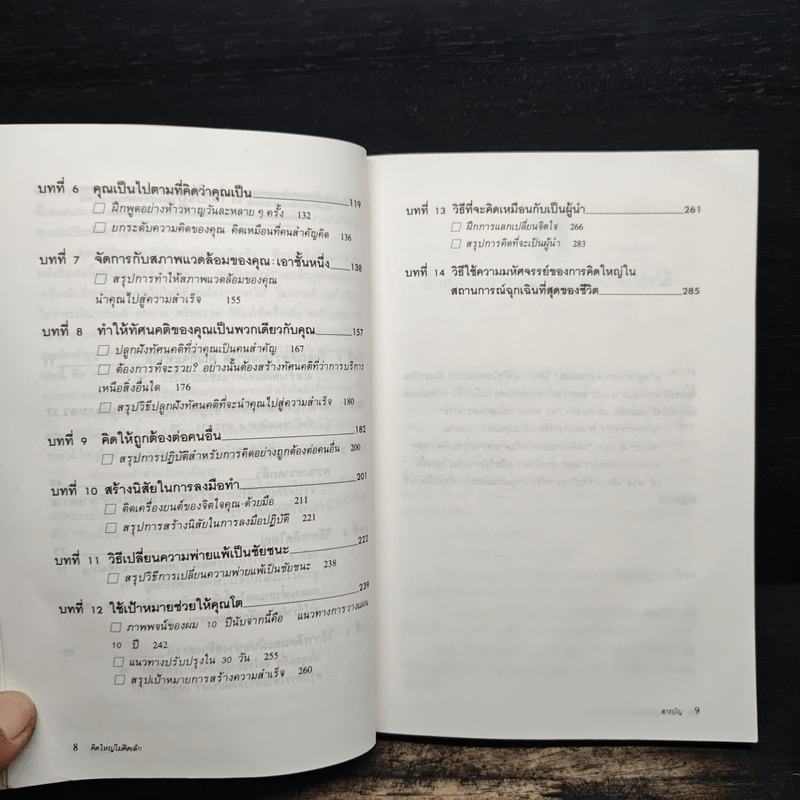 บทที่ 6 คุณเป็นไปตามที่คิดว่าคุณเป็น 119
☐ ฝึกพูดอย่างห้าวหาญวันละหลาย ๆ ครั้ง 132
☐ ยกระดับความคิดของคุณ คิดเหมือนที่คนสำคัญคิด 136
บทที่ 7 จัดการกับสภาพแวดล้อมของคุณ: เอาชั้นหนึ่ง 138
☐ สรุปการทำให้สภาพแวดล้อมของคุณ
นำคุณไปสู่ความสำเร็จ 155
บทที่ 8 ทำให้ทัศนคติของคุณเป็นพวกเดียวกับคุณ 157
☐ ปลูกฝังทัศนคติที่ว่าคุณเป็นคนสำคัญ 167
☐ ต้องการที่จะรวย? อย่างนั้นต้องสร้างทัศนคติที่ว่าการบริการ
เหนือสิ่งอื่นใด 176
☐ สรุปวิธีปลูกฝังทัศนคติที่จะนำคุณไปสู่ความสำเร็จ 180
บทที่ 9 คิดให้ถูกต้องต่อคนอื่น 182
☐ สรุปการปฏิบัติสำหรับการคิดอย่างถูกต้องต่อคนอื่น 200
บทที่ 10 สร้างนิสัยในการลงมือทำ 201
☐ ติดเครื่องยนต์ของจิตใจคุณ-ด้วยมือ 211
☐ สรุปการสร้างนิสัยในการลงมือปฏิบัติ 221
บทที่ 11 วิธีเปลี่ยนความพ่ายแพ้เป็นชัยชนะ 222
☐ สรุปวิธีการเปลี่ยนความพ่ายแพ้เป็นชัยชนะ 238
บทที่ 12 ใช้เป้าหมายช่วยให้คุณโต 239
☐ ภาพพจน์ของผม 10 ปีนับจากนี้คือ แนวทางการวางแผน
10 ปี 242
☐ แนวทางปรับปรุงใน 30 วัน 255
☐ สรุปเป้าหมายการสร้างความสำเร็จ 260
8 คิดใหญ่ไม่คิดเล็ก
บทที่ 13 วิธีที่จะคิดเหมือนกับเป็นผู้นำ 261
☐ ฝึกการแลกเปลี่ยนจิตใจ 266
☐ สรุปการคิดที่จะเป็นผู้นำ 283
บทที่ 14 วิธีใช้ความมหัศจรรย์ของการคิดใหญ่ใน
สถานการณ์ฉุกเฉินที่สุดของชีวิต 285
สารบัญ 9